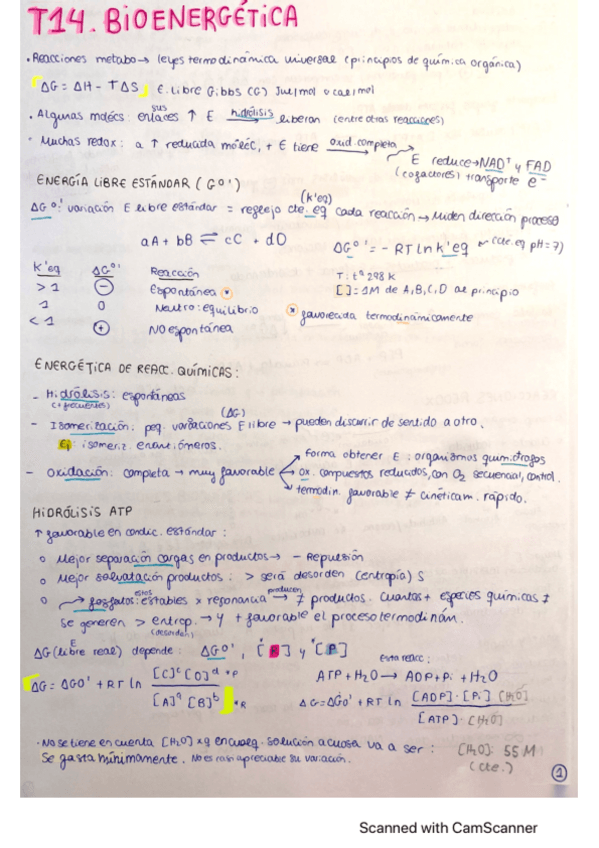 T14. BIOENERGÉTICA
· Reacciones metabo → leyes termodinámica universal (principios de química orgánica)
ΔG = ΔH - TΔS E. libre Gibbs (G) Jul/mol o cal/mol
· Algunas molécs: sus enlaces ↑ E hidrólisis → liberan (entre otras reacciones)
· Muchas redox: a ↑ reducida moléc, + E tiene oxid. completa
E reduce → NAD⁺ y FAD
(cofactores) transporte e⁻
ENERGÍA LIBRE ESTÁNDAR (G°')
ΔG°': variación E libre estándar = reflejo cte. eq (k'eq) cada reacción → Miden dirección proceso
aA + bB ⇌ cC + dD ΔG°' = - RT ln k'eq (cte. eq pH=7)
k'eq ΔG°' Reacción T: tª 298 K
> 1 ⊖ Espontánea * [ ] = 1M de A,B,C,D al principio
1 0 Neutro: equilibrio * favorecida termodinámicamente
< 1 ⊕ NO espontánea
ENERGÉTICA DE REACC. QUÍMICAS:
- Hidrólisis: espontáneas
(+ frecuentes)
- Isomerización: peq. variaciones E libre (ΔG) → pueden discurrir de sentido a otro.
Ej: isomeriz. enantiómeros.
- Oxidación: completa → muy favorable
forma obtener E: organismos quimiótrofos
ox. compuestos reducidos, con O₂ secuencial, control.
termodin. favorable ≠ cinéticam. rápido.
HIDRÓLISIS ATP
↑ favorable en condic. estándar:
o Mejor separación cargas en productos → - Repulsión
o Mejor solvatación productos: > será desorden (entropía) S
o → fosfatos: estables x resonancia estos producen → ≠ productos. Cuantas + especies químicas ≠
se generen > entrop. (desorden) → y + favorable el proceso termodinám.
ΔG (E libre real) depende: ΔG°', [R] y [P] esta reacc:
ΔG = ΔG°' + RT ln [C]ᶜ [D]ᵈ *P / [A]ᵃ [B]ᵇ *R
ATP + H₂O → ADP + Pi + H₂O
ΔG = ΔG°' + RT ln [ADP]·[Pi] [H₂O] / [ATP]·[H₂O]
· No se tiene en cuenta [H₂O] xq en cualq. solución acuosa va a ser: [H₂O]: 55 M
Se gasta mínimamente. No es casi apreciable su variación. (cte.)
1
Scanned with CamScanner